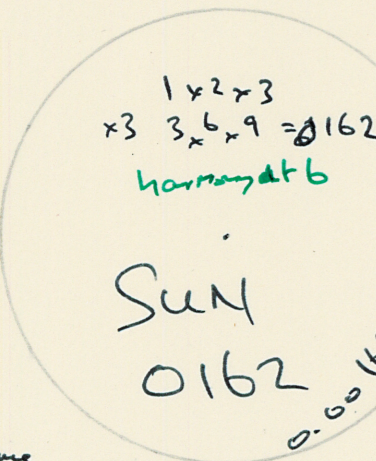 1 x 2 x 3
x3 3 x 6 x 9 = 0162
harmony at 6
SUN
0162
0.00